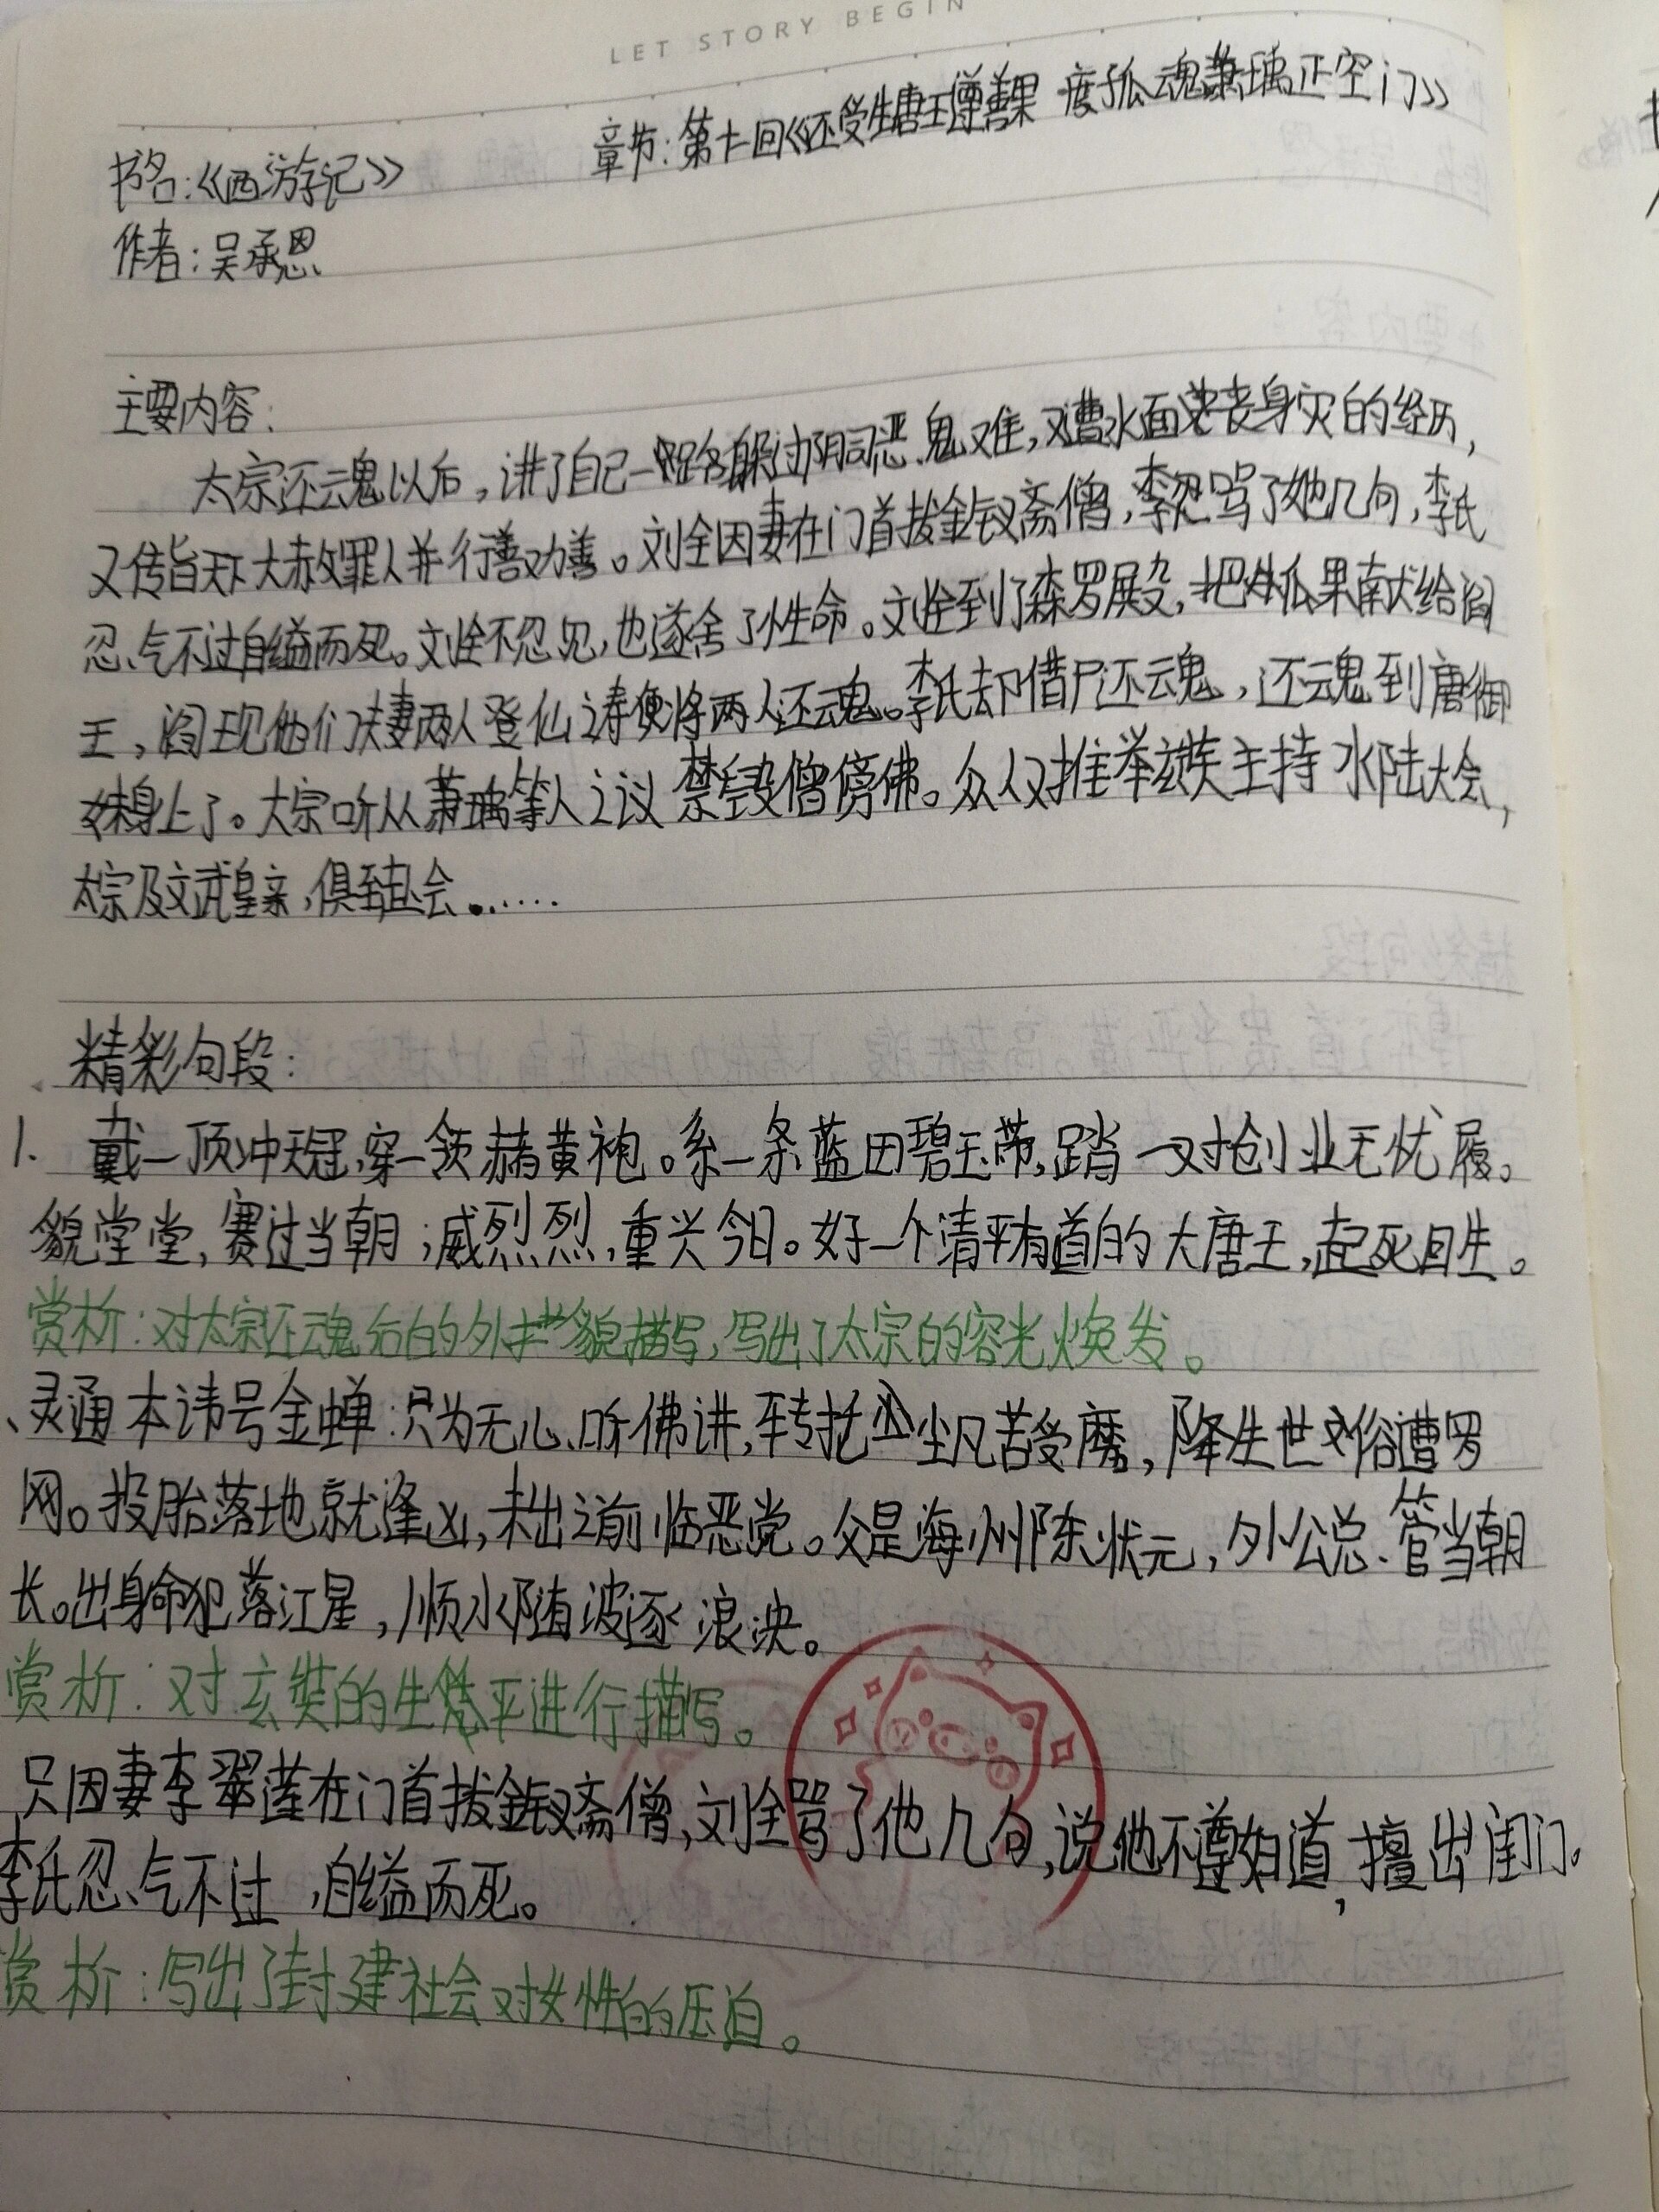 LET STORY BEGIN
章节:第十一回《还受生唐王遵善果 度孤魂萧瑀正空门》
书名:《西游记》
作者:吴承恩
主要内容:
太宗还魂以后,讲了自己一路躲过阴司恶鬼难,又遭水面丧身灾的经历,
又传旨天下大赦罪人并行善劝善。刘全因妻在门首拔金钗斋僧,骂了她几句,李氏
忍气不过自缢而死。刘全不忍见,也遂舍了性命。刘全到了森罗殿,把瓜果献给阎
王,阎王现他们夫妻两人登仙之寿便将两人还魂。李氏却借尸还魂,还魂到唐御
妹身上了。太宗听从萧瑀等人之议禁毁僧傍佛。众人又推举玄奘主持水陆大会,
太宗及文武皇亲,俱至赴会……
精彩句段:
1. 戴一顶冲天冠,穿一领赭黄袍。系一条蓝田碧玉带,踏一对创业无忧履。
貌堂堂,赛过当朝;威烈烈,重兴今日。好一个清平有道的大唐王,起死回生。
赏析:对太宗还魂后的外貌描写,写出了太宗的容光焕发。
、灵通本讳号金蝉:只为无心听佛讲,转托尘凡苦受磨,降生世俗遭罗
网。投胎落地就逢凶,未出之前临恶党。父是海州陈状元,外公总管当朝
长。出身命犯落江星,顺水随波逐浪泱。
赏析:对玄奘的生平进行描写。
只因妻李翠莲在门首拔金钗斋僧,刘全骂了他几句,说他不遵妇道,擅出闺门。
李氏忍气不过,自缢而死。
赏析:写出了封建社会对女性的压迫。